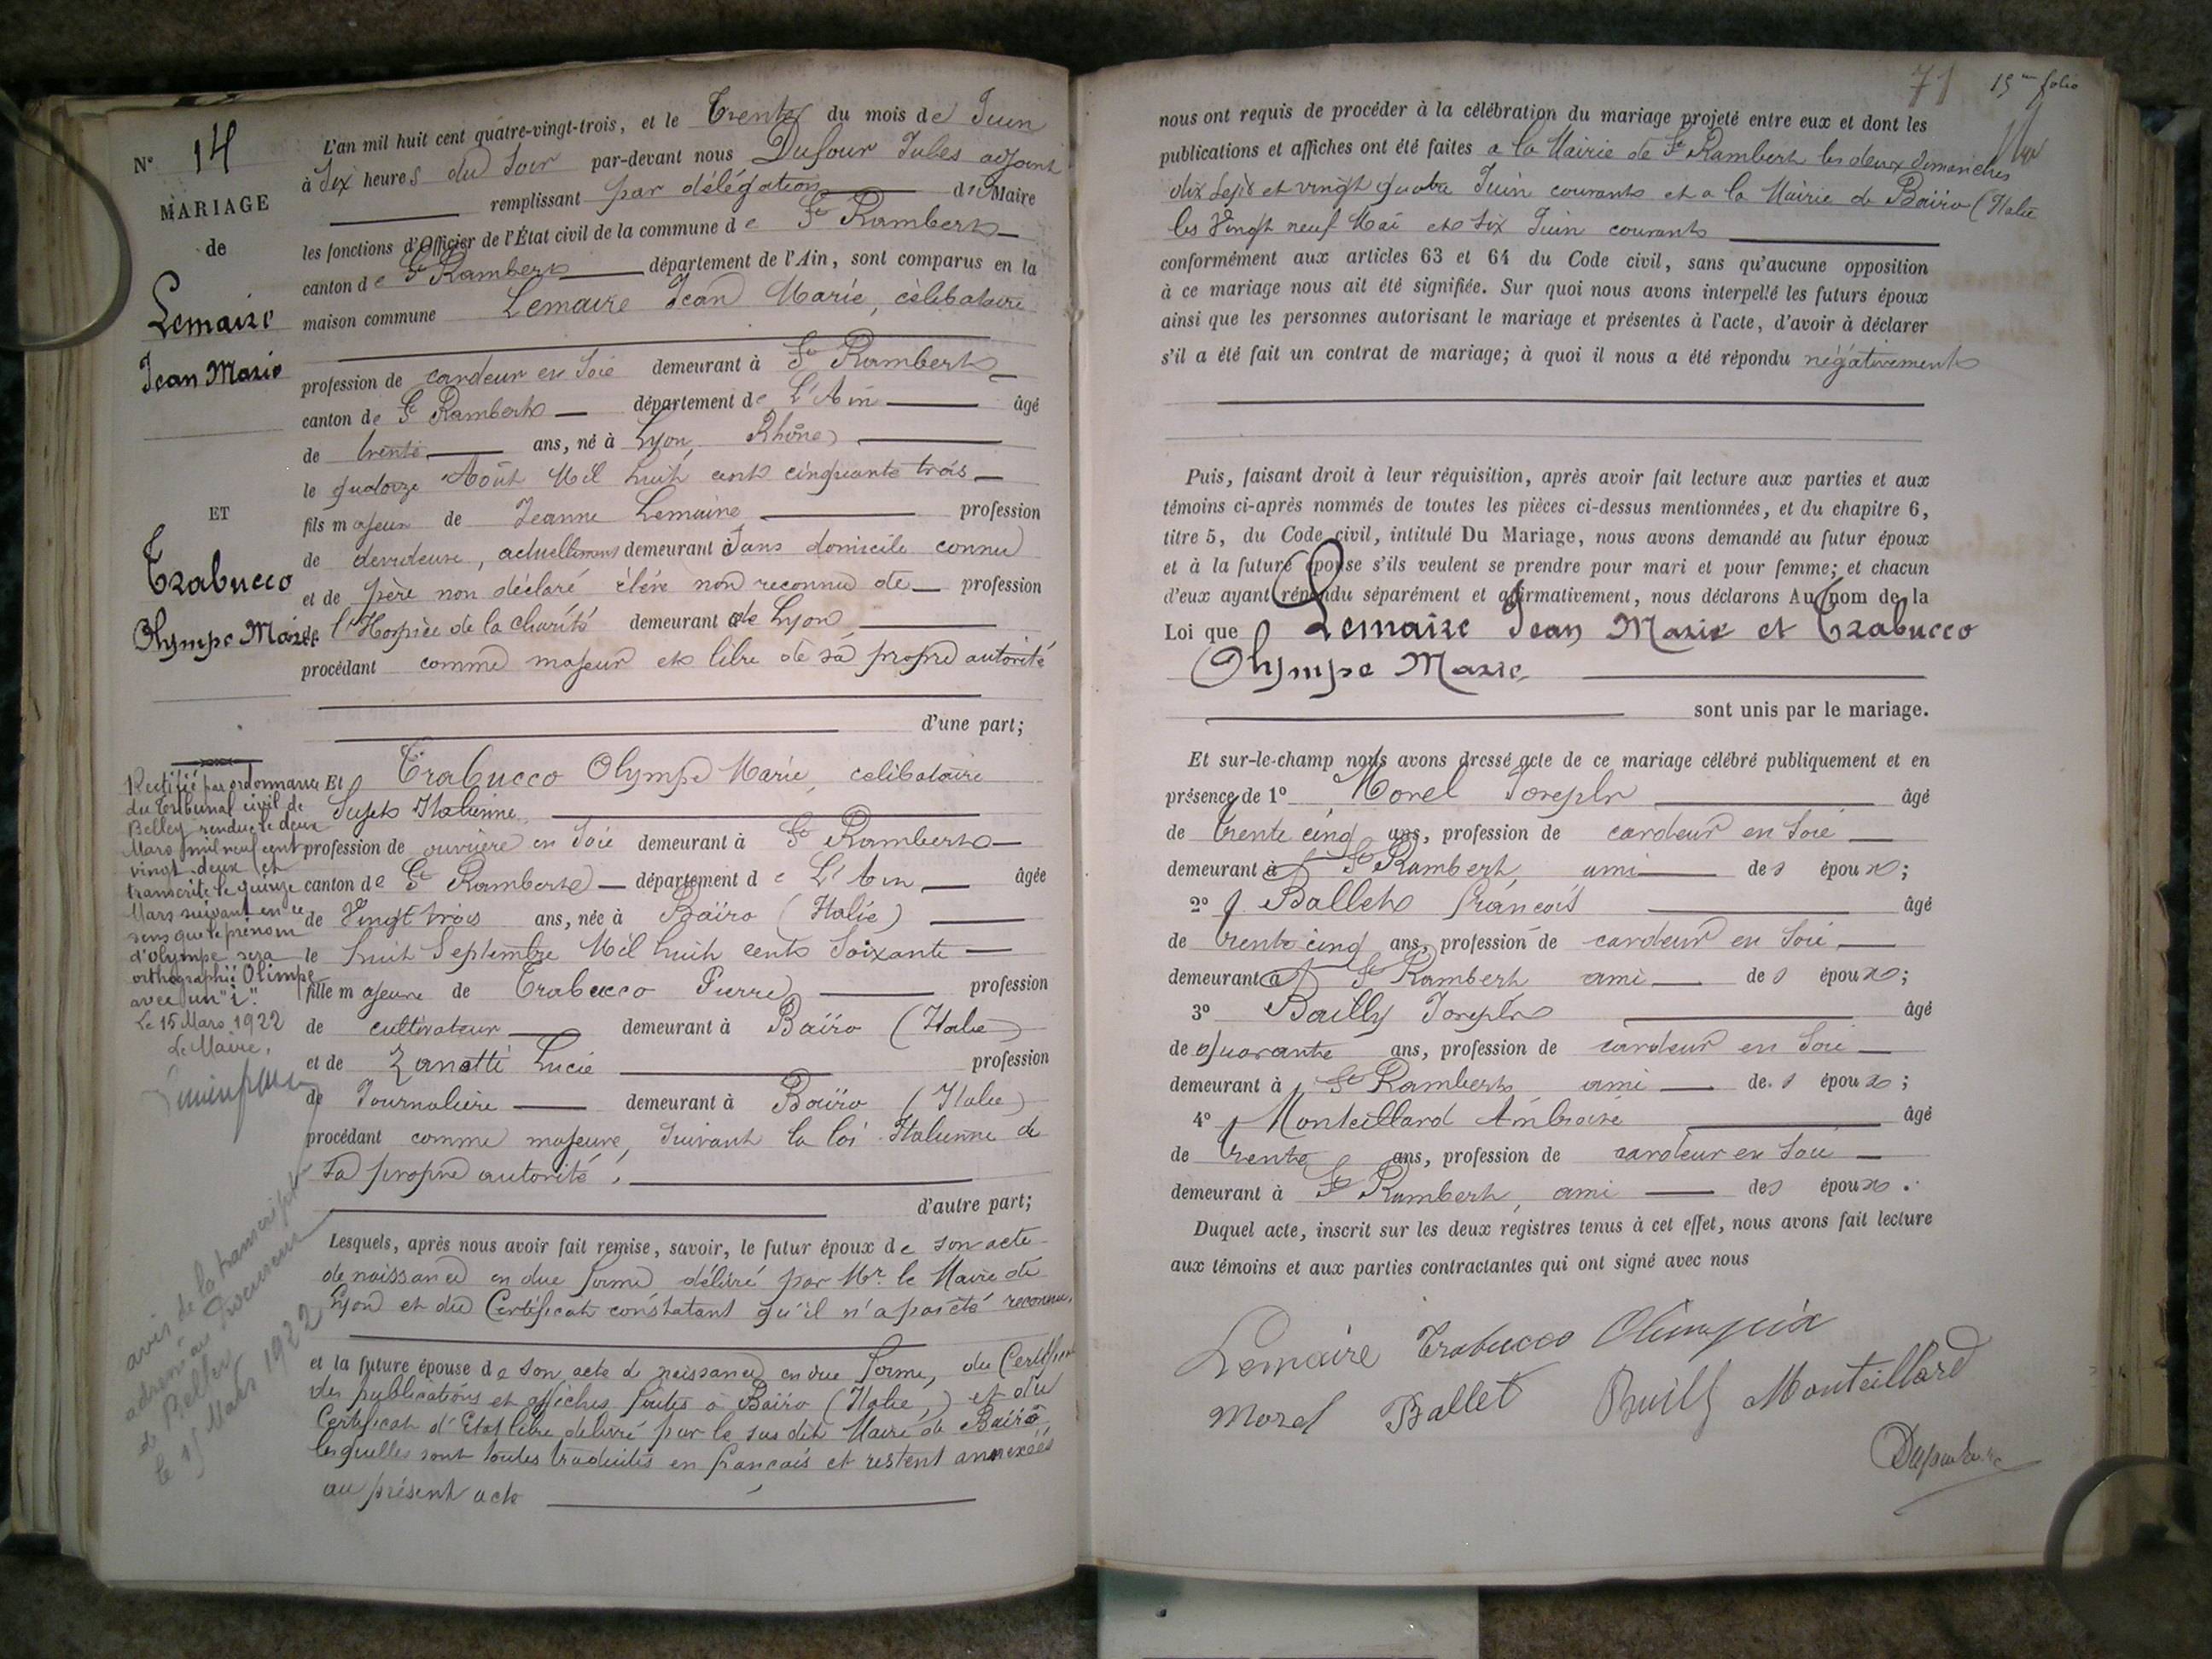 N° 14
MARIAGE
de
Lemaire
Jean Marie
ET
Trabucco
Olympe Marie
Rectifié par ordonnance
du Tribunal civil de
Belley rendue le deux
Mars mil neuf cent
vingt-deux et
transcrite le quinze
Mars suivant en ce
sens que le prénom
d'olympe sera
orthographié Olimpe
avec un "i".
Le 15 Mars 1922
Le Maire,
avis de la transcript
adressé au Procureur
de Belley
le 15 Mars 1922
L'an mil huit cent quatre-vingt-trois, et le Trente du mois de Juin
à Six heures du Soir par-devant nous Dufour Jules adjoint
remplissant par délégation du Maire
les fonctions d'Officier de l'État civil de la commune de St Rambert
canton de St Rambert département de l'Ain, sont comparus en la
maison commune Lemaire Jean Marie, célibataire
profession de cardeur en Soie demeurant à St Rambert
canton de St Rambert département de L'Ain âgé
de trente ans, né à Lyon, Rhône
le quatorze Août Mil huit cent cinquante trois
fils majeur de Jeanne Lemaire profession
de devideuse, actuellement demeurant à Sans domicile connu
et de père non déclaré élève non reconnu de profession
de l'Hospice de la Charité demeurant de Lyon
procédant comme majeur et libre de sa propre autorité
d'une part;
Et Trabucco Olympe Marie, célibataire
Sujete Italienne
profession de ouvrière en Soie demeurant à St Rambert
canton de St Rambert département de L'Ain âgée
de Vingt trois ans, née à Baïro (Italie)
le huit Septembre Mil huit cent Soixante
fille majeure de Trabucco Pierre profession
de cultivateur demeurant à Baïro (Italie)
et de Zanotti Lucie profession
de Journalière demeurant à Baïro (Italie)
procédant comme majeure, Suivant la loi Italienne de
sa propre autorité,
d'autre part;
Lesquels, après nous avoir fait remise, savoir, le futur époux de son acte
de naissance en due forme délivré par Mr le Maire de
Lyon et du Certificat constatant qu'il n'a pas été reconnu,
et la future épouse de son acte de naissance en due forme, du Certificat
des publications et affiches faites à Baïro (Italie,) et du
Certificat d'Etat libre délivré par le sus dit Maire de Baïro,
lesquelles sont toutes traduites en français et restent annexées
au présent acte
71 15me folio
nous ont requis de procéder à la célébration du mariage projeté entre eux et dont les
publications et affiches ont été faites a la Mairie de St Rambert les deux dimanches
dix Sept et vingt quatre Juin courant et a la Mairie de Baïro (Italie
les Vingt neuf Mai et Six Juin courant
conformément aux articles 63 et 64 du Code civil, sans qu'aucune opposition
à ce mariage nous ait été signifiée. Sur quoi nous avons interpellé les futurs époux
ainsi que les personnes autorisant le mariage et présentes à l'acte, d'avoir à déclarer
s'il a été fait un contrat de mariage; à quoi il nous a été répondu négativement
Puis, faisant droit à leur réquisition, après avoir fait lecture aux parties et aux
témoins ci-après nommés de toutes les pièces ci-dessus mentionnées, et du chapitre 6,
titre 5, du Code civil, intitulé Du Mariage, nous avons demandé au futur époux
et à la future épouse s'ils veulent se prendre pour mari et pour femme; et chacun
d'eux ayant répondu séparément et affirmativement, nous déclarons Au nom de la
Loi que Lemaire Jean Marie et Trabucco
Olympe Marie
sont unis par le mariage.
Et sur-le-champ nous avons dressé acte de ce mariage célébré publiquement et en
présence de 1° Morel Joseph âgé
de trente cinq ans, profession de cardeur en Soie
demeurant à St Rambert ami des époux;
2° Ballet François âgé
de trente cinq ans, profession de cardeur en Soie
demeurant à St Rambert ami des époux;
3° Bailly Joseph âgé
de quarante ans, profession de cardeur en Soie
demeurant à St Rambert ami des époux;
4° Monteillard Ambroise âgé
de trente ans, profession de cardeur en Soie
demeurant à St Rambert, ami des époux.
Duquel acte, inscrit sur les deux registres tenus à cet effet, nous avons fait lecture
aux témoins et aux parties contractantes qui ont signé avec nous
Lemaire Trabucco Olimpia
Morel Ballet Bailly Monteillard